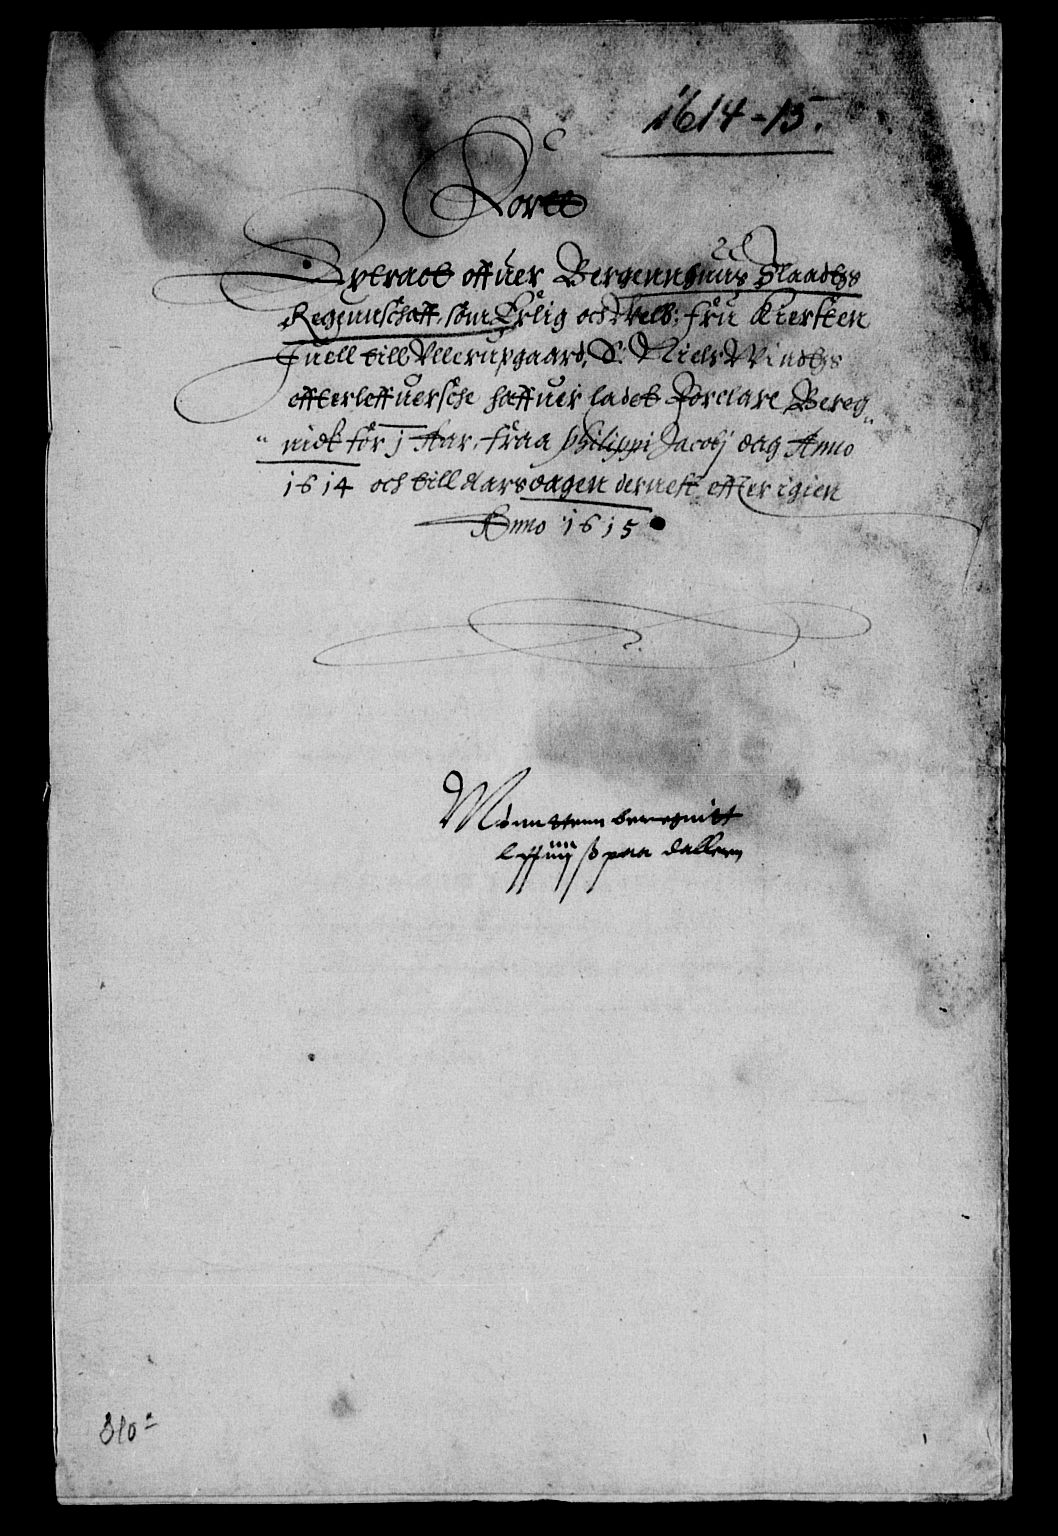 1614-15.
Kortt
Extract offuer Bergennhuus Slaadtzs
Regennschaff, som Erlig och Velb: fru Kiersten
Juell till Ullerupgaard, S: Niels Windtzs
effterleffuersche haffuer ladet forclare Bereg„
„nidt for j Aar, fraa Philippi Jacobj dag Anno
1614 och till Aarsdagen dernest effter igien
Anno 1615
Mønntenn beregnitt
paa dallern